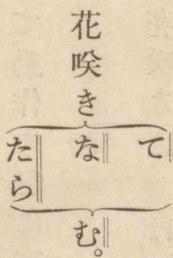 花咲き
て
な
たら
む。